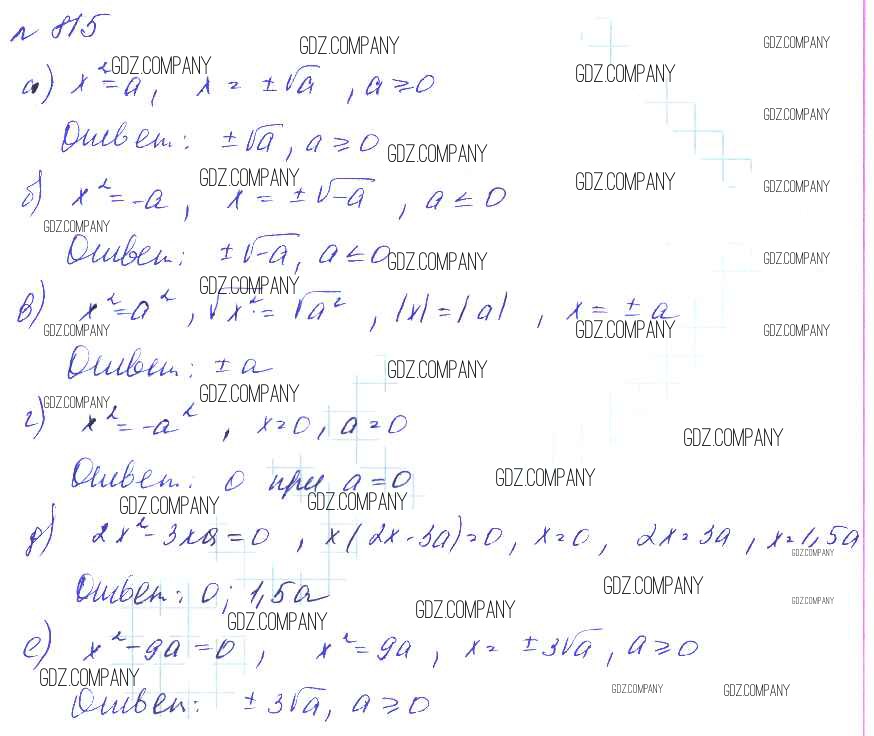 № 815
GDZ.COMPANY GDZ.COMPANY GDZ.COMPANY GDZ.COMPANY
а) x² = a, x = ±√a, a ≥ 0
GDZ.COMPANY
Ответ: ±√a, a ≥ 0 GDZ.COMPANY
GDZ.COMPANY GDZ.COMPANY GDZ.COMPANY
б) x² = -a, x = ±√-a, a ≤ 0
GDZ.COMPANY
Ответ: ±√-a, a ≤ 0 GDZ.COMPANY GDZ.COMPANY
GDZ.COMPANY
в) x² = a², √x² = √a², |x| = |a|, x = ± a
GDZ.COMPANY GDZ.COMPANY GDZ.COMPANY
Ответ: ± a GDZ.COMPANY
GDZ.COMPANY GDZ.COMPANY
г) x² = -a², x = 0, a = 0
GDZ.COMPANY
Ответ: 0 при a = 0 GDZ.COMPANY
GDZ.COMPANY GDZ.COMPANY
д) 2x² - 3xa = 0, x(2x - 3a) = 0, x = 0, 2x = 3a, x = 1,5a
GDZ.COMPANY
Ответ: 0; 1,5a GDZ.COMPANY GDZ.COMPANY
GDZ.COMPANY GDZ.COMPANY
е) x² - 9a = 0, x² = 9a, x = ±3√a, a ≥ 0
GDZ.COMPANY GDZ.COMPANY GDZ.COMPANY
Ответ: ±3√a, a ≥ 0